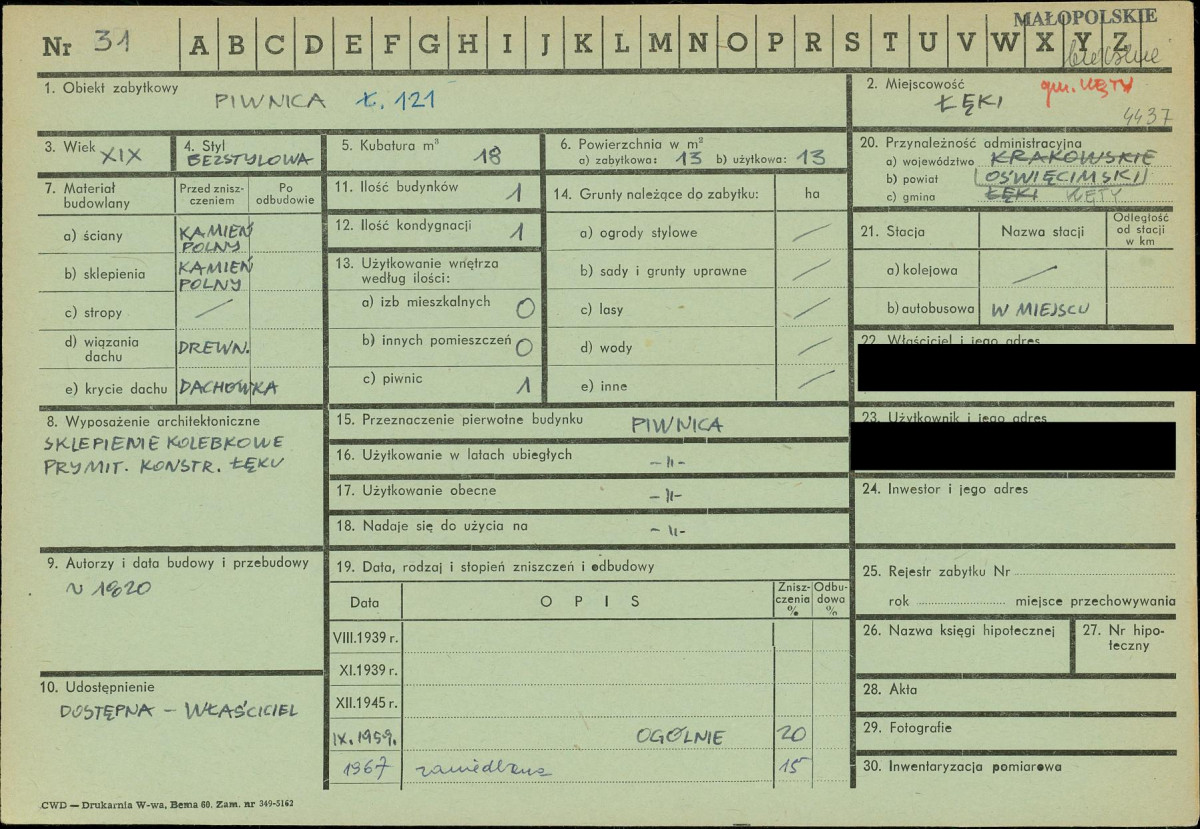 MAŁOPOLSKIE
Nr 31 A B C D E F G H I J K L M N O P R S T U V W X Y Z
1. Obiekt zabytkowy
PIWNICA Ł. 121
2. Miejscowość
gm. KĘTY
ŁĘKI
4437
3. Wiek XIX
4. Styl
BEZSTYLOWA
5. Kubatura m³ 18
6. Powierzchnia w m²
a) zabytkowa: 13 b) użytkowa: 13
20. Przynależność administracyjna
a) województwo KRAKOWSKIE
b) powiat OŚWIĘCIMSKI
c) gmina ŁĘKI KĘTY
7. Materiał budowlany
Przed zniszczeniem
Po odbudowie
a) ściany KAMIEŃ POLNY
b) sklepienia KAMIEŃ POLNY
c) stropy /
d) wiązania dachu DREWN.
e) krycie dachu DACHÓWKA
11. Ilość budynków 1
12. Ilość kondygnacji 1
13. Użytkowanie wnętrza
według ilości:
a) izb mieszkalnych 0
b) innych pomieszczeń 0
c) piwnic 1
14. Grunty należące do zabytku: ha
a) ogrody stylowe /
b) sady i grunty uprawne /
c) lasy /
d) wody /
e) inne /
21. Stacja Nazwa stacji Odległość od stacji w km
a) kolejowa /
b) autobusowa W MIEJSCU
22. Właściciel i jego adres
23. Użytkownik i jego adres
24. Inwestor i jego adres
8. Wyposażenie architektoniczne
SKLEPIENIE KOLEBKOWE
PRYMIT. KONSTR. ŁĘKU
15. Przeznaczenie pierwotne budynku PIWNICA
16. Użytkowanie w latach ubiegłych -„-
17. Użytkowanie obecne -„-
18. Nadaje się do użycia na -„-
9. Autorzy i data budowy i przebudowy
~ 1820
19. Data, rodzaj i stopień zniszczeń i odbudowy
Data OPIS Zniszczenia % Odbudowa %
VIII.1939 r.
XI.1939 r.
XII.1945 r.
IX.1959. OGÓLNIE 20
1967 zaniedbana 15
10. Udostępnienie
DOSTĘPNA – WŁAŚCICIEL
25. Rejestr zabytku Nr
rok miejsce przechowywania
26. Nazwa księgi hipotecznej
27. Nr hipoteczny
28. Akta
29. Fotografie
30. Inwentaryzacja pomiarowa
CWD — Drukarnia W-wa, Bema 60. Zam. nr 349-5162